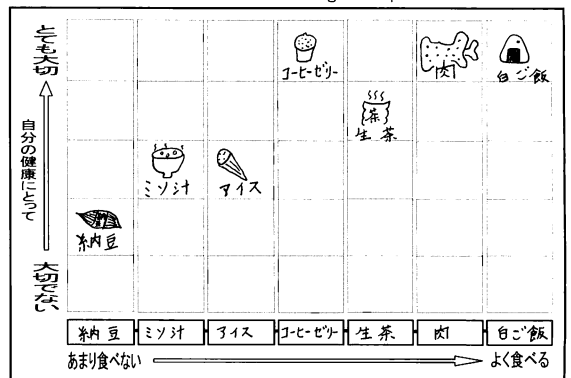 とても大切
自分の健康にとって
大切でない
コーヒーゼリー
肉
白ご飯
茶
生茶
ミソ汁
アイス
納豆
納豆
ミソ汁
アイス
コーヒーゼリー
生茶
肉
白ご飯
あまり食べない
よく食べる